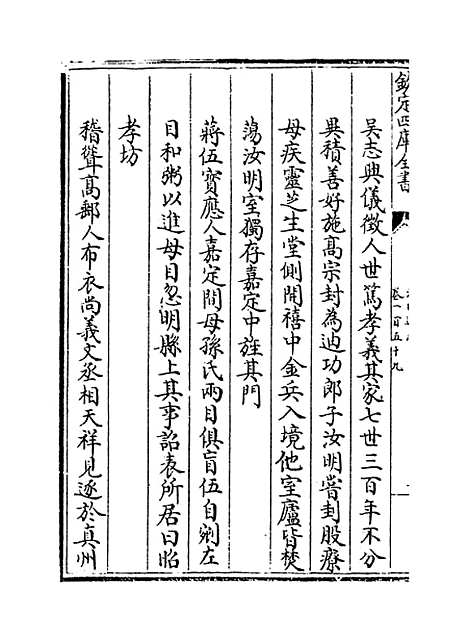 欽定四庫全書
卷一百五十九
吴志興儀徵人世篤孝義其家七世三百年不分
異積善好施高宗封為迪功郎子汝明嘗封股療
母疾靈芝生堂側開禧中金兵入境他室廬皆焚
蕩汝明室獨存嘉定中旌其門
蔣伍寳應人嘉定間母孫氏兩目俱盲伍自剜左
目和粥以進母目忽明縣上其事詔表所居曰昭
孝坊
稽聳髙郵人布衣尚義文丞相天祥見逐於真州